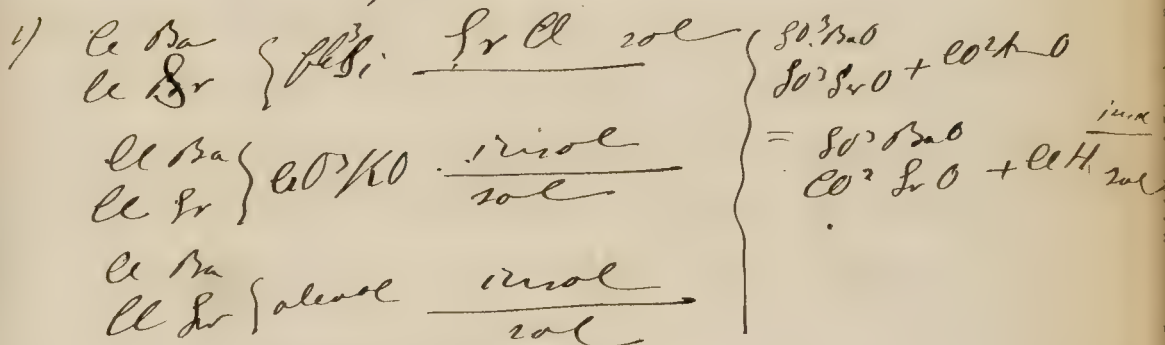 1) Cl Ba
Cl Sr } fl³Si Sr Cl sol
Cl Ba
Cl Sr } CrO³KO insol
sol
Cl Ba
Cl Sr } alcool insol
sol
SO³BaO
SO³SrO + CO²AmO
= SO³BaO
CO²SrO + ClH
sol